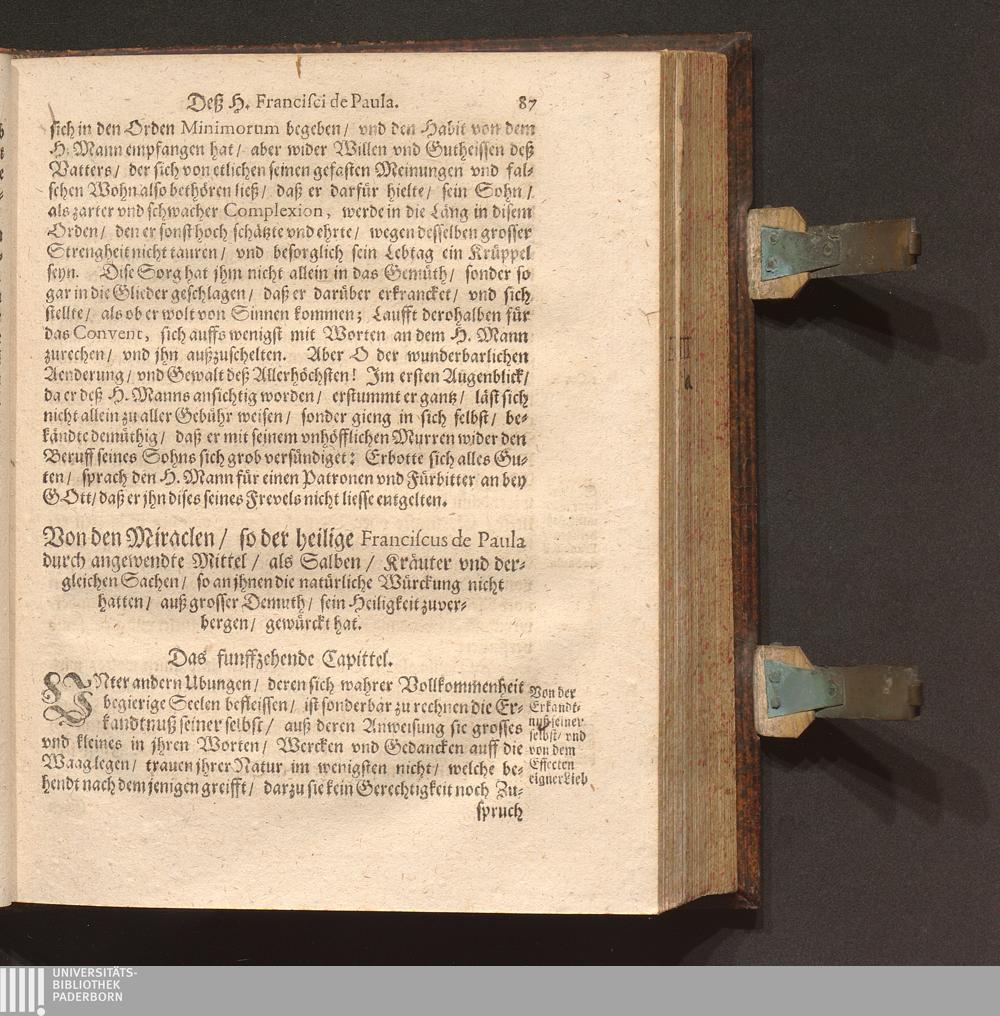 Deß H. Francisci de Paula. 87
sich in den Orden Minimorum begeben/ vnd den Habit von dem
H. Mann empfangen hat/ aber wider Willen vnd Gutheissen deß
Vatters/ der sich von etlichen seinen gefasten Meinungen vnd fal-
schen Wohn also bethören ließ/ daß er darfür hielte/ sein Sohn/
als zarter vnd schwacher Complexion, werde in die Läng in disem
Orden/ den er sonst hoch schätzte vnd ehrte/ wegen desselben grosser
Strengheit nicht tauren/ vnd besorglich sein Lebtag ein Krüppel
seyn. Dise Sorg hat jhm nicht allein in das Gemüth/ sonder so
gar in die Glieder geschlagen/ daß er darüber erkrancket/ vnd sich
stellte/ als ob er wolt von Sinnen kommen; Laufft derohalben für
das Convent, sich auffs wenigst mit Worten an dem H. Mann
zurechen/ vnd jhn außzuschelten. Aber O der wunderbarlichen
Aenderung/ vnd Gewalt deß Allerhöchsten! Im ersten Augenblick/
da er deß H. Manns ansichtig worden/ erstummt er gantz/ läst sich
nicht allein zu aller Gebühr weisen/ sonder gieng in sich selbst/ be-
kändte demüthig/ daß er mit seinem vnhöfflichen Murren wider den
Beruff seines Sohns sich grob versündiget: Erbotte sich alles Gu-
ten/ sprach den H. Mann für einen Patronen vnd Fürbitter an bey
GOtt/ daß er jhn dises seines Frevels nicht liesse entgelten.
Von den Miraclen/ so der heilige Franciscus de Paula
durch angewendte Mittel/ als Salben/ Kräuter vnd der-
gleichen Sachen/ so an jhnen die natürliche Würckung nicht
hatten/ auß grosser Demuth/ sein Heiligkeit zuver-
bergen/ gewürckt hat.
Das funffzehende Capittel.
UNter andern Ubungen/ deren sich wahrer Vollkommenheit
begierige Seelen befleissen/ ist sonderbar zu rechnen die Er-
kandtnuß seiner selbst/ auß deren Anweisung sie grosses
vnd kleines in jhren Worten/ Wercken vnd Gedancken auff die
Waag legen/ trauen jhrer Natur im wenigsten nicht/ welche be-
hendt nach dem jenigen greifft/ darzu sie kein Gerechtigkeit noch Zu-
spruch
Von der
Erkandt-
nuß seiner
selbst/ vnd
von dem
Effecten
eigner Lieb
UNIVERSITÄTS-
BIBLIOTHEK
PADERBORN